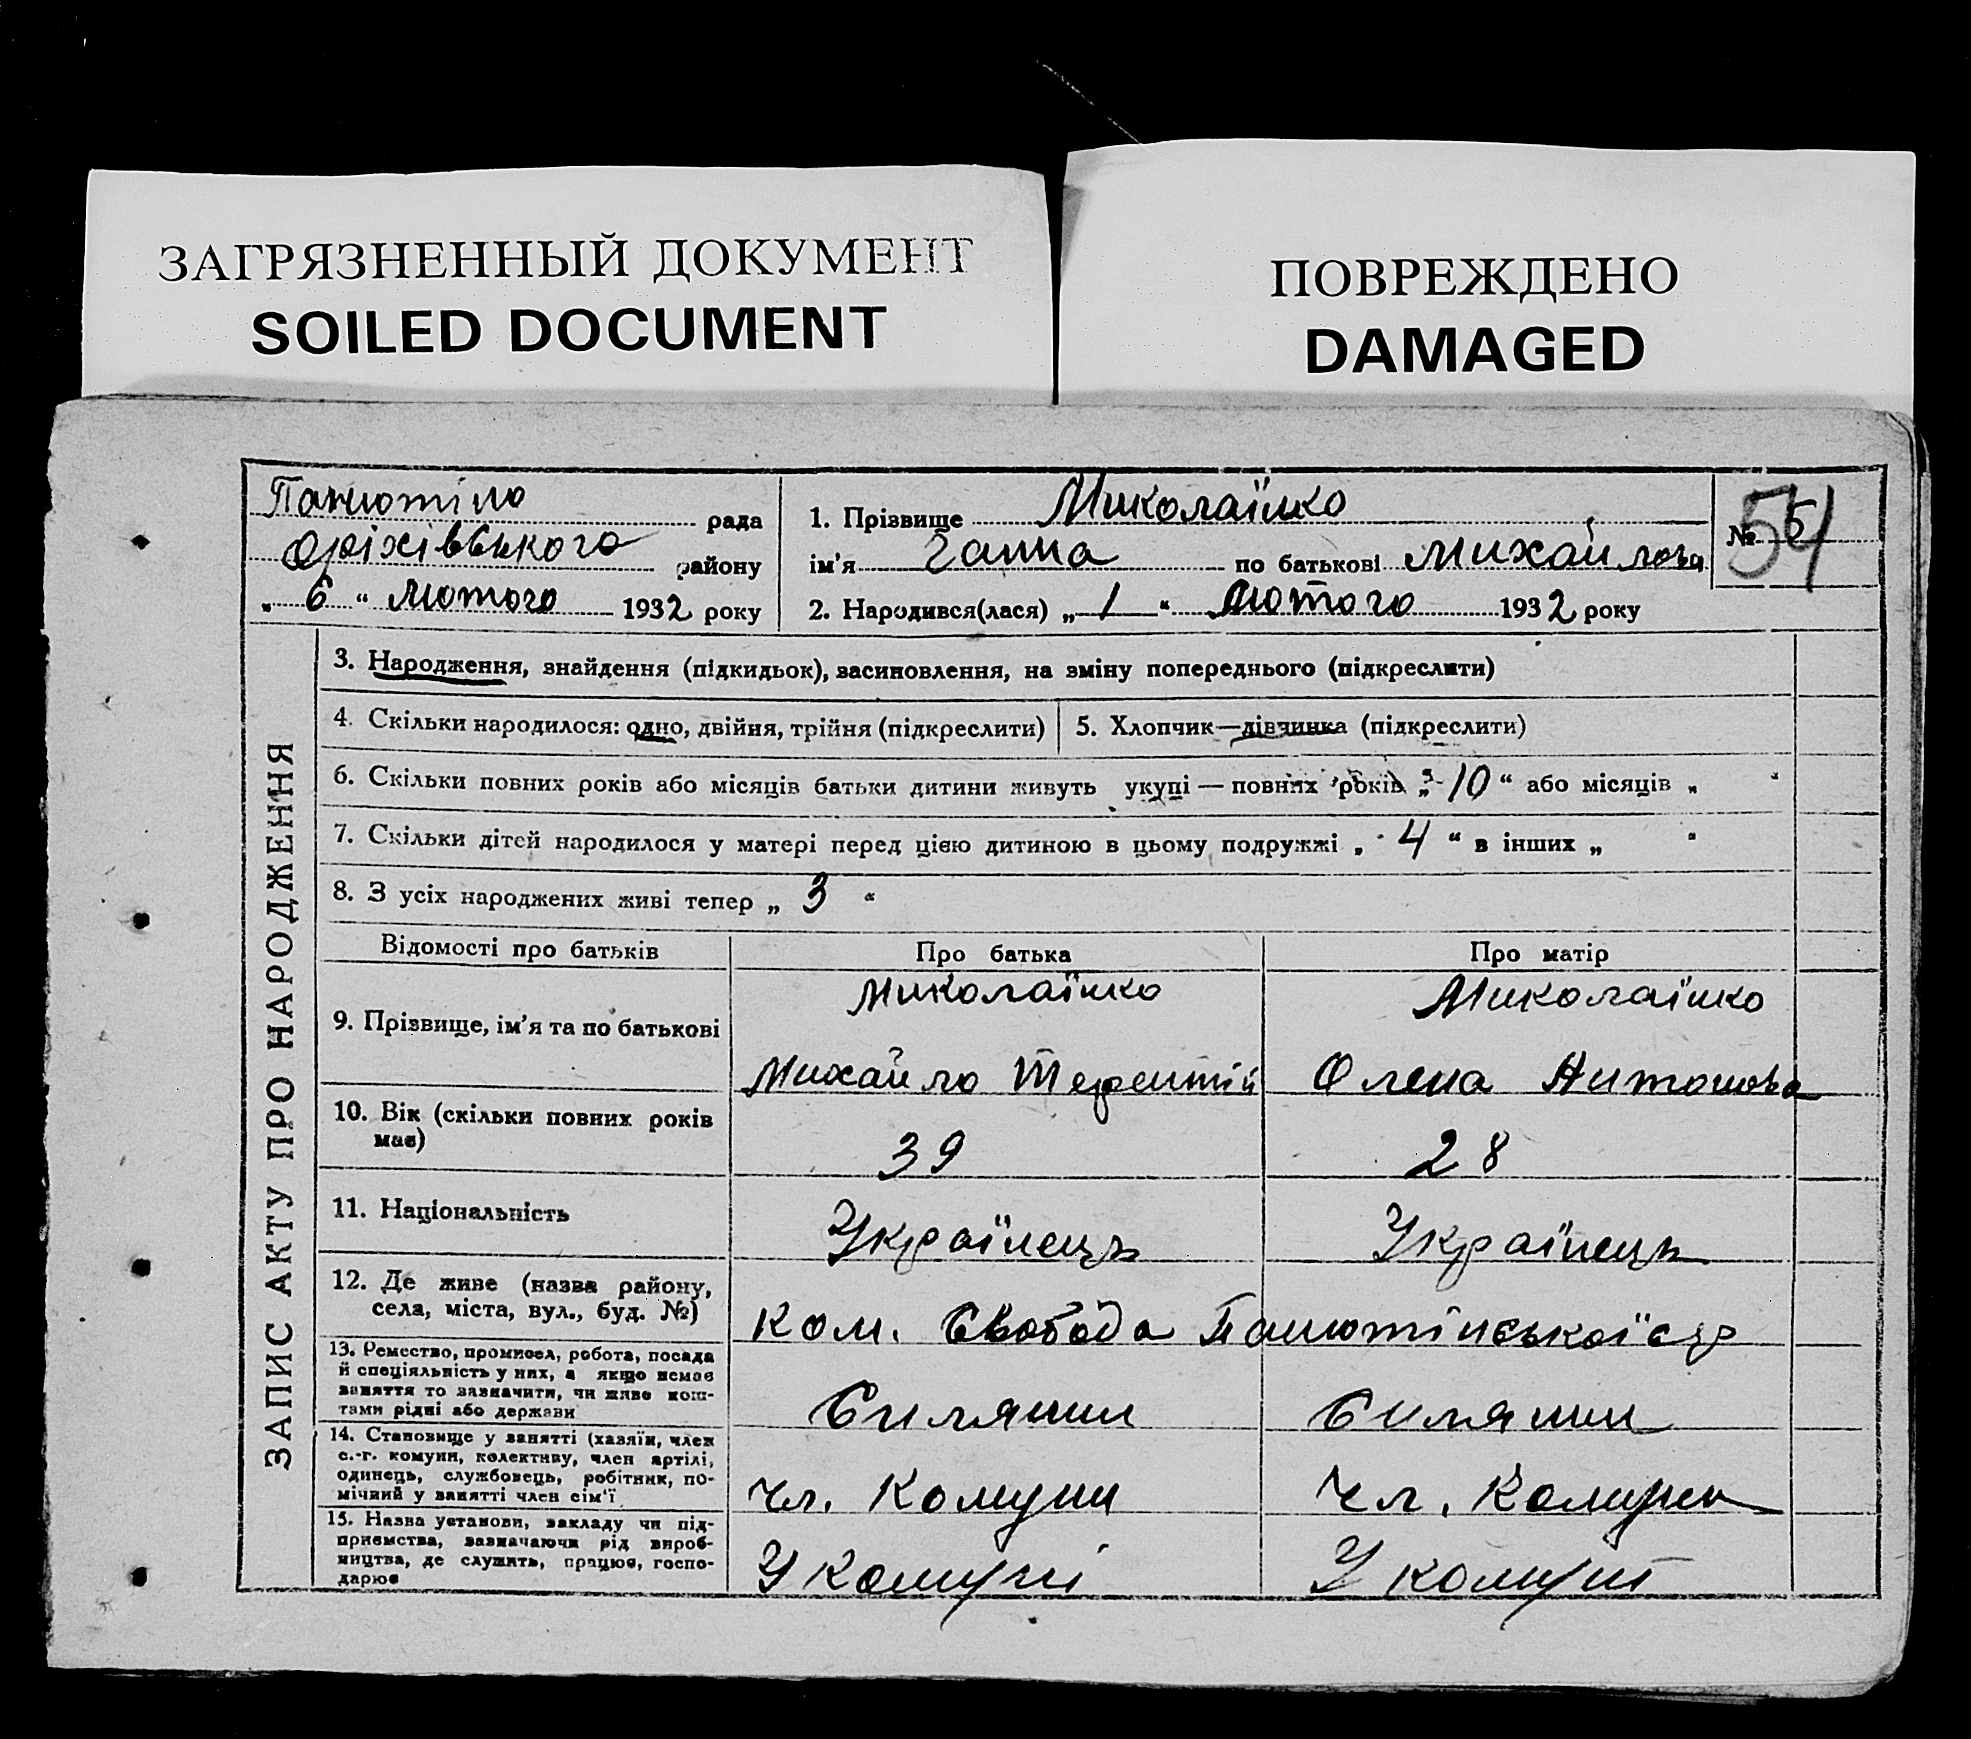 ЗАГРЯЗНЕННЫЙ ДОКУМЕНТ
SOILED DOCUMENT
ПОВРЕЖДЕНО
DAMAGED
рада
Оріхівського району
„ 6 “ лютого 1932 року
1. Прізвище Миколаїнко
ім'я Ганна по батькові Михайлова
2. Народився(лася) „ 1 “ Лютого 1932 року
№ 54
ЗАПИС АКТУ ПРО НАРОДЖЕННЯ
3. Народження, знайдення (підкидьок), засиновлення, на зміну попереднього (підкреслити)
4. Скільки народилося: одно, двійня, трійня (підкреслити)
5. Хлопчик—дівчинка (підкреслити)
6. Скільки повних років або місяців батьки дитини живуть укупі — повних років „ 10 “ або місяців „ “
7. Скільки дітей народилося у матері перед цією дитиною в цьому подружжі „ 4 “ в інших „ “
8. З усіх народжених живі тепер „ 3 “
Відомості про батьків
Про батька
Про матір
9. Прізвище, ім'я та по батькові
Миколаїнко
Михайло Терентій
Миколаїнко
Олена Антонова
10. Вік (скільки повних років
має)
39
28
11. Національність
Українець
Українець
12. Де живе (назва району,
села, міста, вул., буд. №)
Ком. Свобода Панютінської с/р
13. Ремество, промисел, робота, посада
й спеціяльність у них, а якщо немає
заняття то зазначити, чи живе кош-
тами рідні або держави
Силянин
Силянин
14. Становище у занятті (хазяїн, член
с.-г. комуни, колективу, член артілі,
одинець, службовець, робітник, по-
мічний у занятті член сім'ї
Чл. Комуни
Чл. Комуни
15. Назва установи, закладу чи під-
приємства, зазначаючи рід вироб-
ництва, де служить, працює, госпо-
дарює
У комуні
У комуні